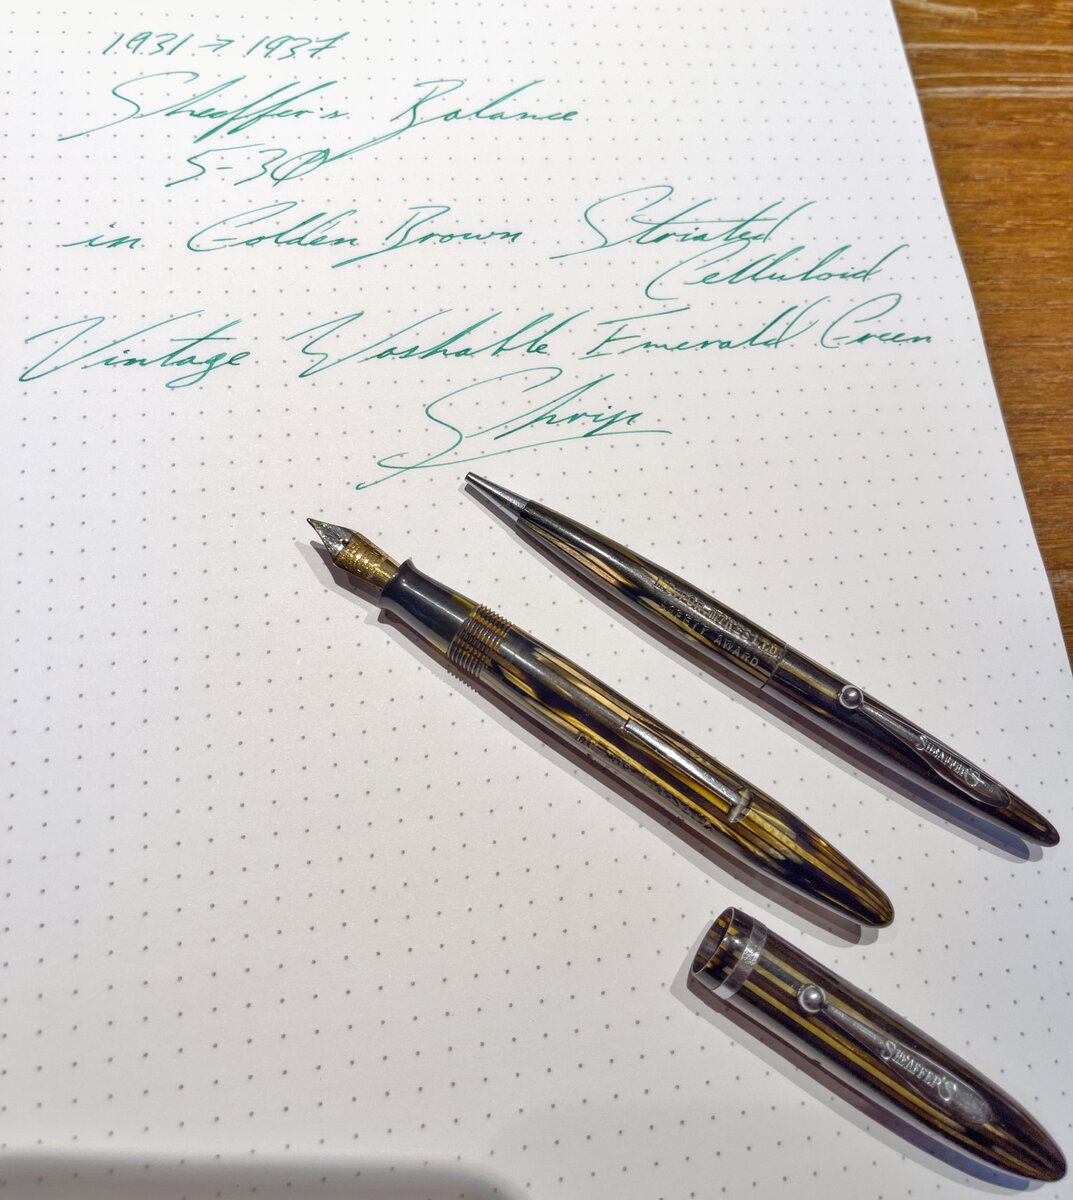 1931 → 1937
Sheaffer's Balance
5-30
in Golden Brown Striated
Celluloid
Vintage Washable Emerald Green
Skrip
SAFETY AWARD
SHEAFFER'S
SHEAFFER'S